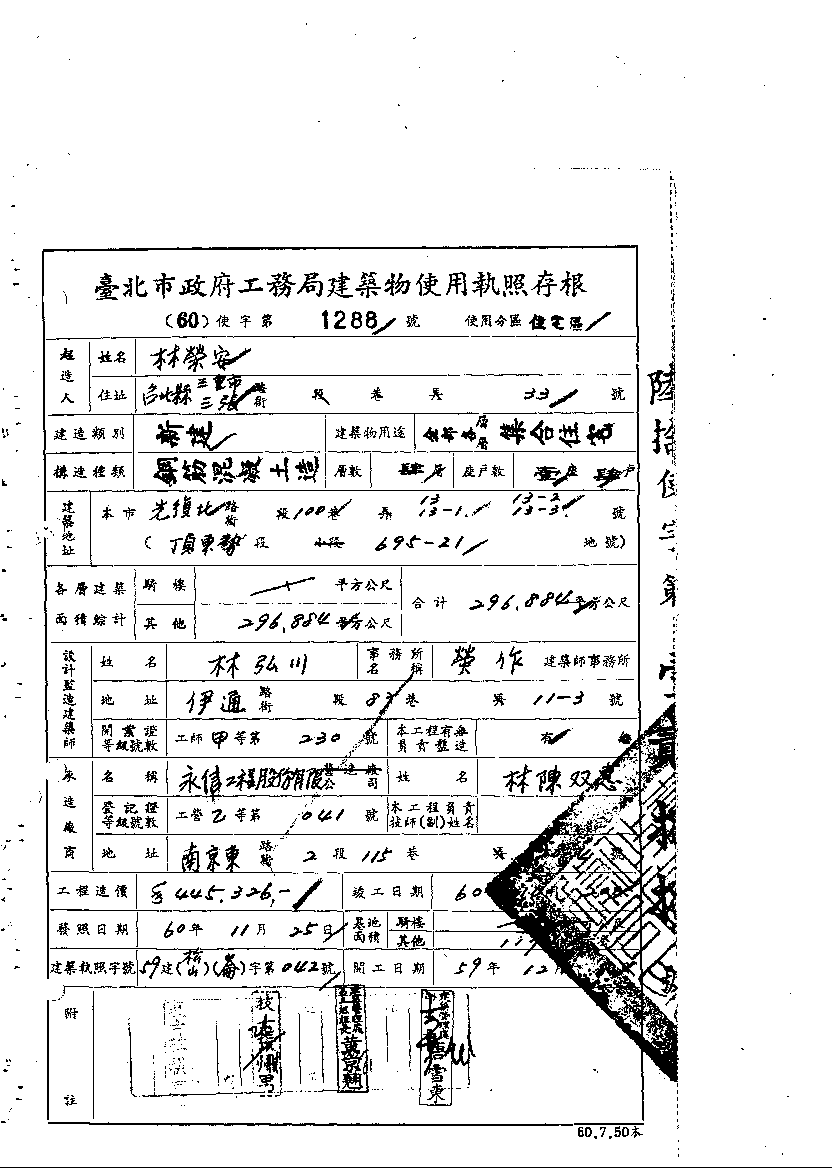 臺北市政府工務局建築物使用執照存根
(60)使字第 1288 號 使用分區 住宅區
起造人 姓名 林榮安
住址 台北縣 三重市 三張 路街 段 巷 弄 33 號
建造類別 新建 建築物用途 全部各層 集合住宅
構造種類 鋼筋混凝土造 層數 肆層 座戶數 壹座 肆戶
建築地址 本市 光復北 路街 段100巷 弄 13 13-1. 13-2 13-3. 號
(頂東勢 段 小段 695-21 地號)
各層建築面積綜計 騎樓 平方公尺 合計 296.884平方公尺
其他 296.884平方公尺
設計監造建築師 姓名 林弘川 事務所名稱 榮作 建築師事務所
地址 伊通 路街 段 87巷 弄 11-3 號
開業證等級號數 工師 甲 等第 230 號 本工程有無負責監造 有
承造廠商 名稱 永信工程股份有限公司 營造廠 姓名 林陳双惠
登記證等級號數 工營 乙 等第 041 號 本工程負責技師(副)姓名
地址 南京東 路街 2 段 115 巷 弄 號
工程造價 $445.326.- 竣工日期 60
發照日期 60年 11月 25日 基地面積 騎樓
其他
建築執照字號 59建(松山)(崙)字第042號 開工日期 59年 12月
附註
60.7.50本
陸拾使字第